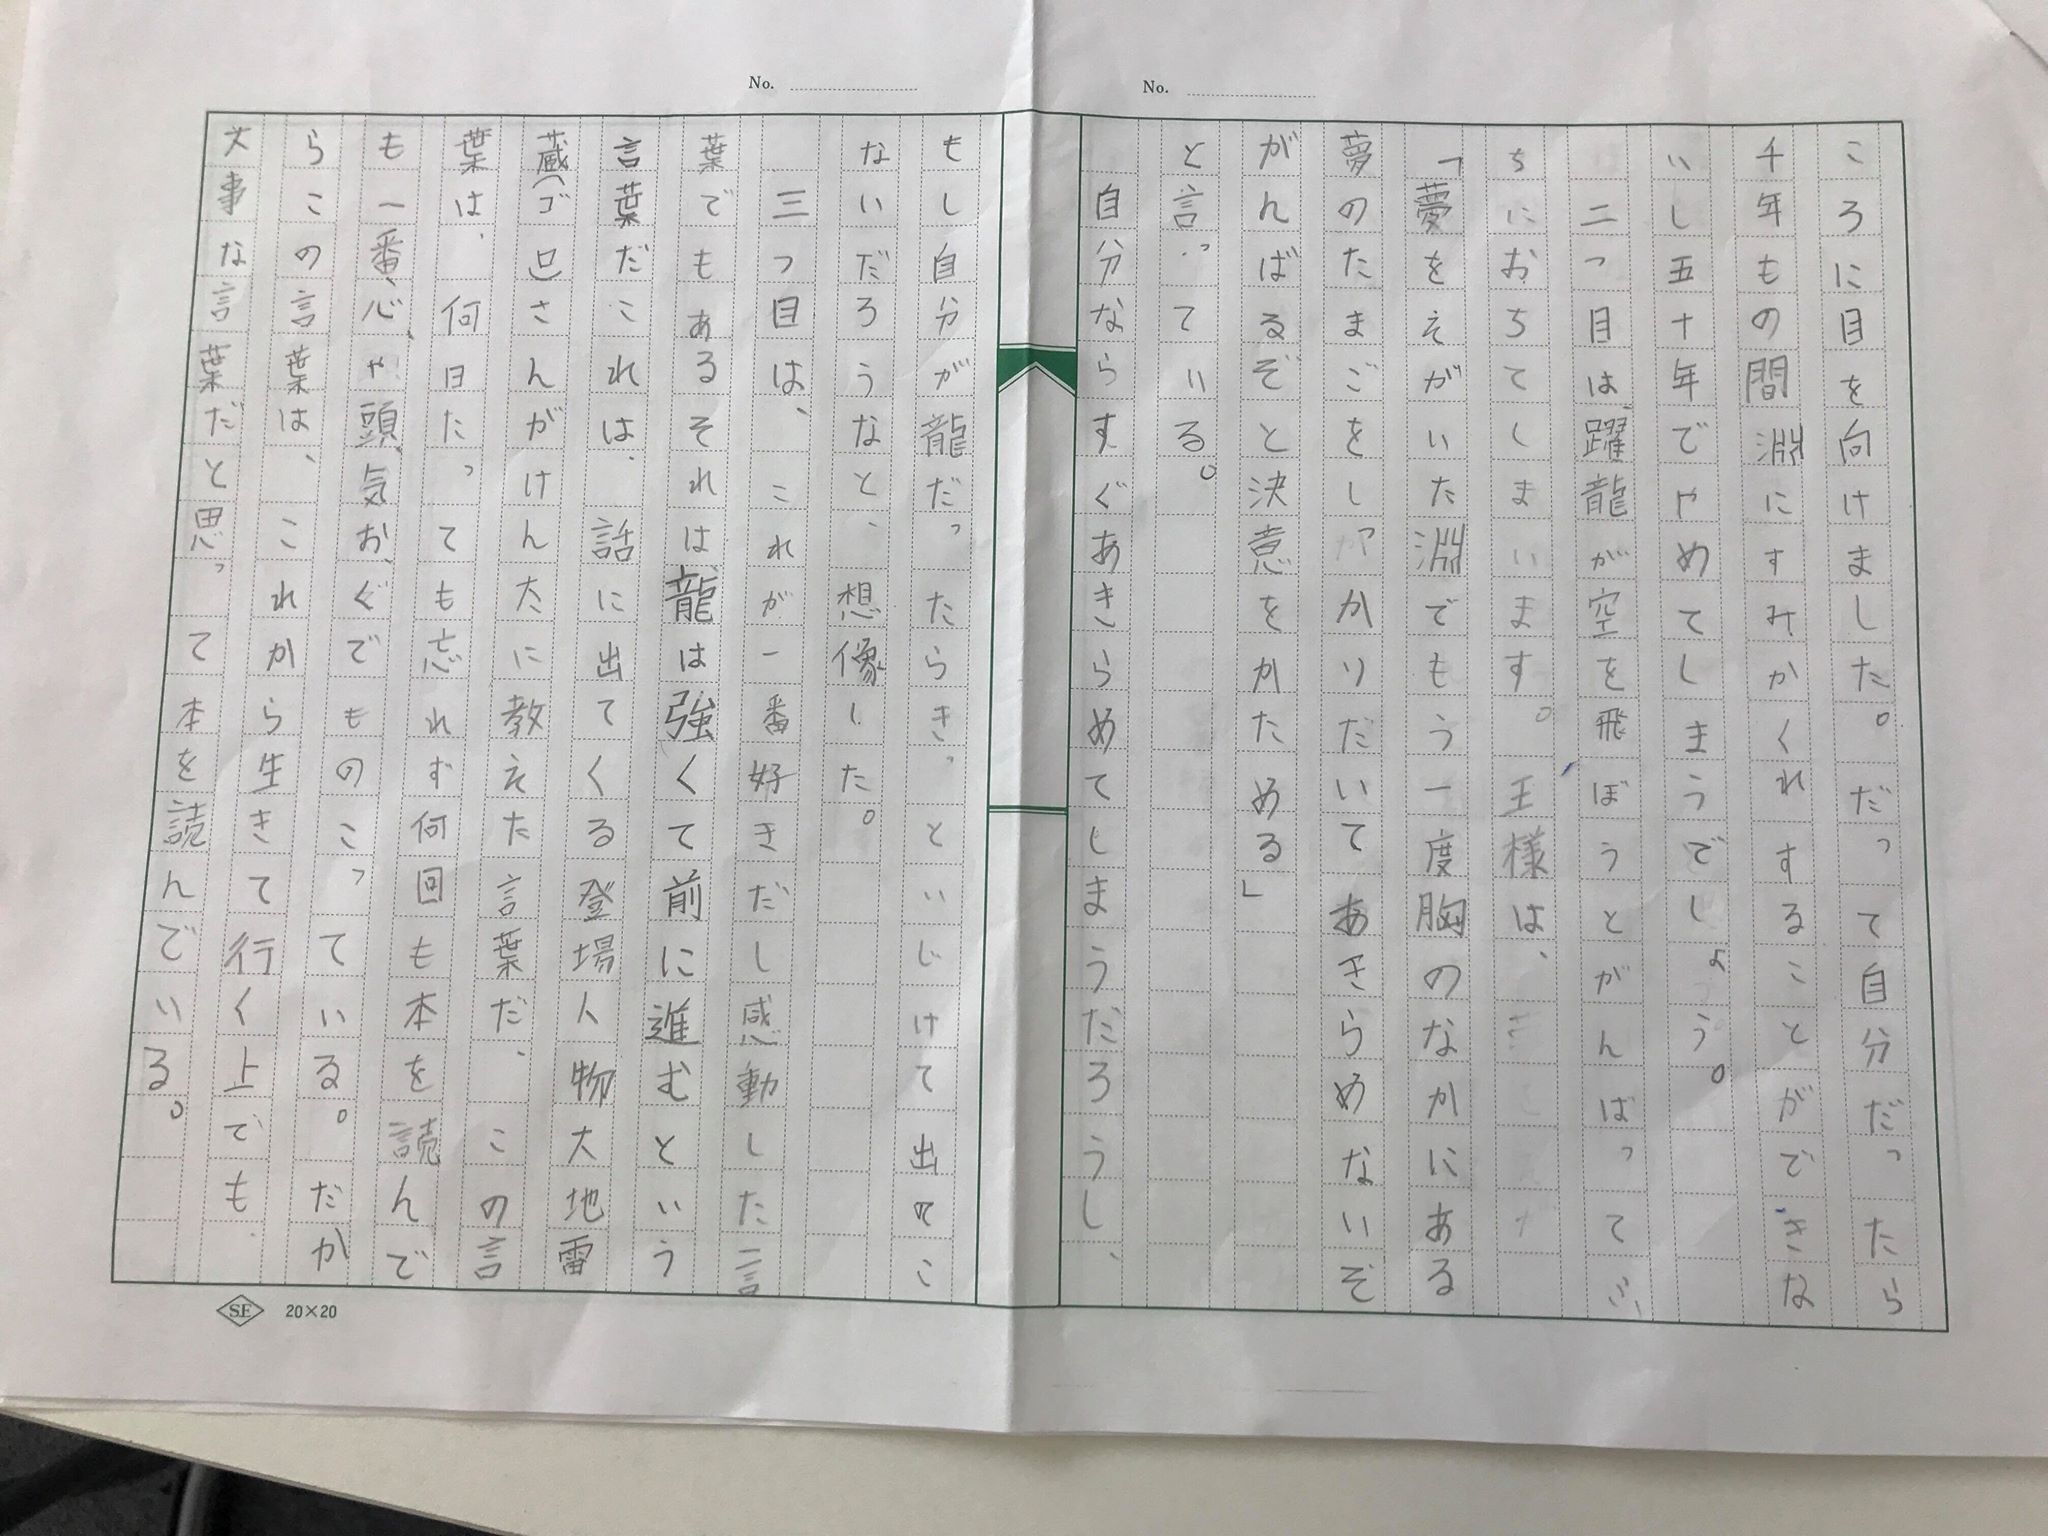 No.
No.
ころに目を向けました。だって自分だったら
千年もの間淵にすみかくれすることができな
いし五十年でやめてしまうでしょう。
二つ目は、躍龍が空を飛ぼうとがんばってふ
ちにおちてしまいます。王様は、
「夢をえがいた淵でもう一度胸のなかにある
夢のたまごをしっかりだいてあきらめないぞ
がんばるぞと決意をかためる」
と言っている。
自分ならすぐあきらめてしまうだろうし、
もし自分が龍だったらきっといじけて出てこ
ないだろうなと、想像した。
三つ目は、これが一番好きだし感動した言
葉でもあるそれは、龍は強くて前に進むという
言葉だこれは、話に出てくる登場人物大地雷
蔵(ゴロ)さんがけん太に教えた言葉だ、この言
葉は、何日たっても忘れず何回も本を読んで
も一番、心、や頭、気おくでものこっている。だか
らこの言葉は、これから生きて行く上でも
大事な言葉だと思って本を読んでいる。
S.E 20×20